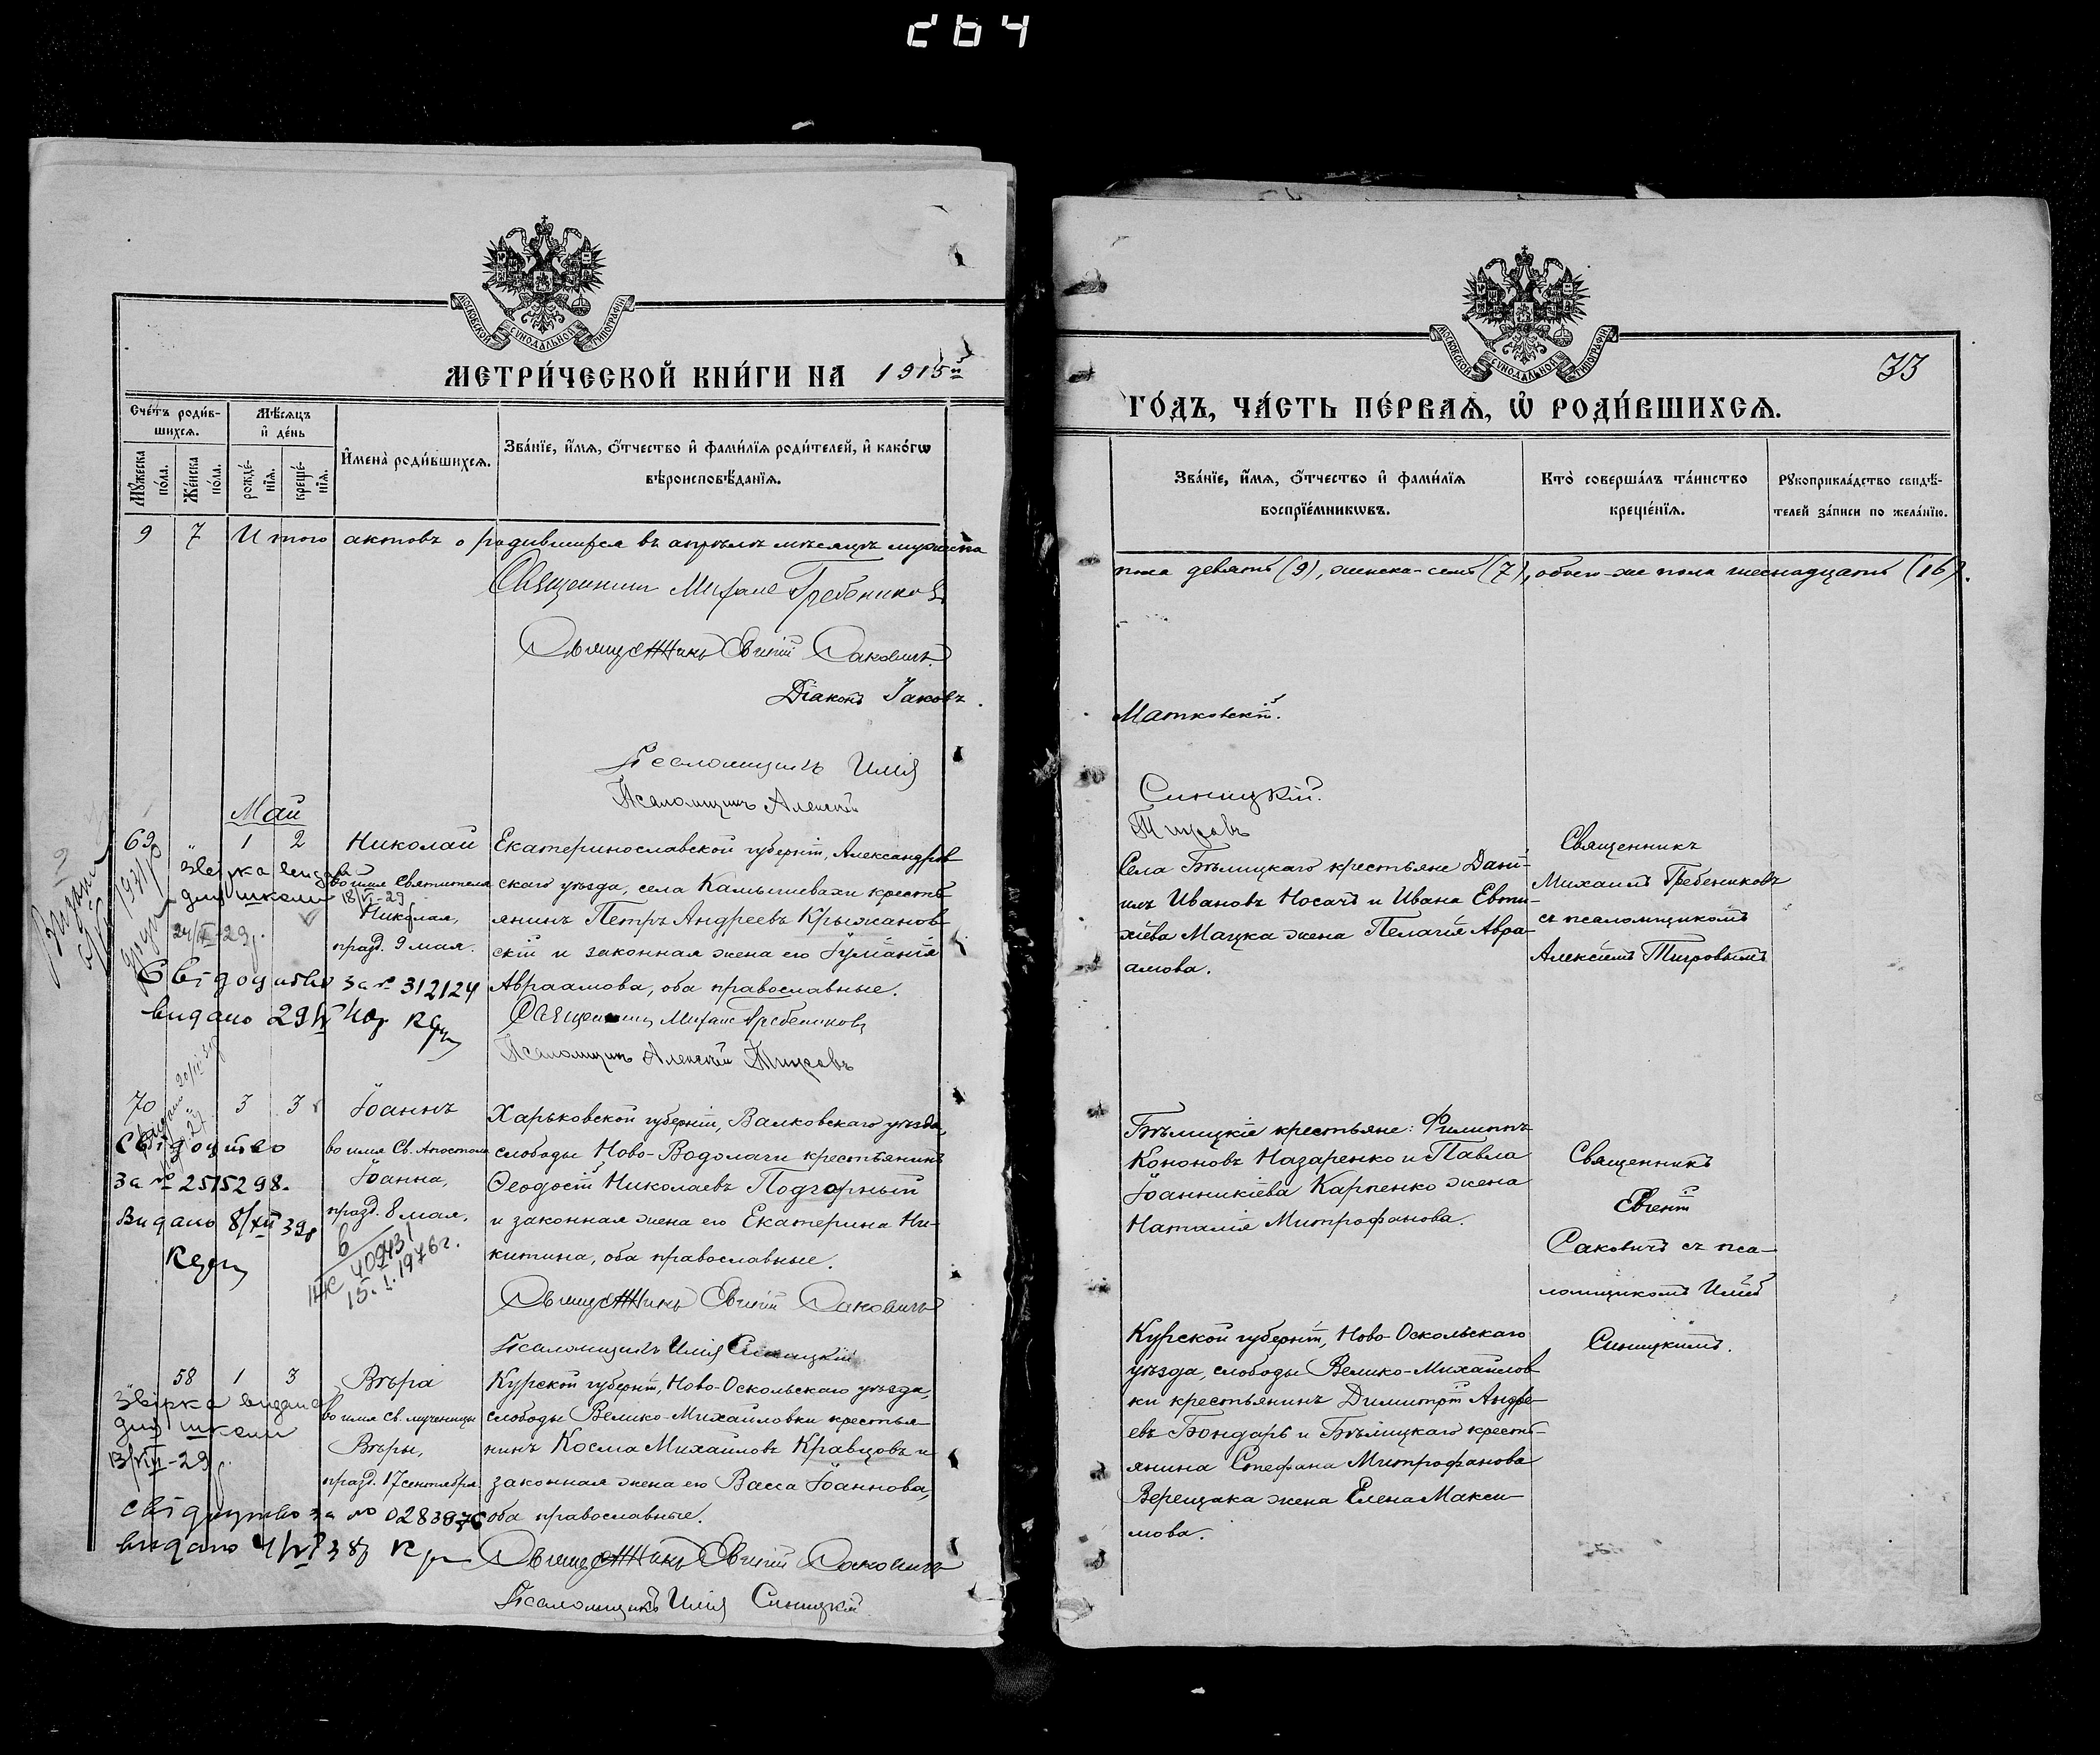 264
МОСКОВСКОЙ СУНОДАЛЬНОЙ ТИПОГРАФИИ
МЕТРИ́ЧЕСКОЙ КНИ́ГИ НА 1915й
Сче́тъ роди́в-
шихсѧ.
Мѣ́сѧцъ
и҆ де́нь
Мꙋ́жеска
по́ла.
Же́нска
по́ла.
рожде́-
нїѧ.
креще́-
нїѧ.
И҆мена̀ роди́вшихсѧ.
Зва́нїе, и҆́мѧ, ѻ҆́тчество и҆ фами́лїѧ роди́телей, и҆ како́гѡ
вѣроисповѣ́данїѧ.
9 7 Итого актовъ о родившихся въ апрѣлѣ мѣсяцѣ мужеска
Священникъ Михаилъ Гребениковъ
Священникъ Евгеній Саковичъ
Діаконъ Іаковъ
Псаломщикъ Илія
Псаломщикъ Алексій
Май
69 " 1 2 Николай
во имя Святителя
Николая,
празд. 9 мая.
Екатеринославской губерніи, Александров
скаго уѣзда, села Камышевахи кресть
янинъ Петръ Андреевъ Крыжанов
скій и законная жена его Іуліанія
Авраамова, оба православные.
Священникъ Михаилъ Гребениковъ
Псаломщикъ Алексій Тигровъ
Звірка видана
для школи
18/VI-29
24/IX-29р.
Видано
1931р
Свідоцтво за № 312124
видано 29/IV 40р.
70 3 3 Іоаннъ
во имя Св. Апостола
Іоанна,
празд. 8 мая.
Харьковской губерніи, Валковскаго уѣзда,
слободы Ново-Водолаги крестьянинъ
Ѳеодосій Николаевъ Подгорный
и законная жена его Екатерина Ни-
китина, оба православные.
Священникъ Евгеній Саковичъ
Псаломщикъ Илія Синицкій
Свідоцтво
за № 2515298.
Видано 8/XII 39р
409431
15.I.1976г.
58 1 3 Вѣра
во имя Св. мученицы
Вѣры,
празд. 17 сентября
Курской губерніи, Ново-Оскольскаго уѣзда,
слободы Велико-Михайловки крестья-
нинъ Косма Михаиловъ Кравцовъ и
законная жена его Васса Іоаннова,
оба православные.
Священникъ Евгеній Саковичъ
Псаломщикъ Илія Синицкій
Звірка видана
для школи
13/VII-29р.
свідоцтво за №
видано
МОСКОВСКОЙ СУНОДАЛЬНОЙ ТИПОГРАФИИ
33
ГО́ДЪ, ЧА́СТЬ ПЕ́РВАѦ, Ѡ҆ РОДИ́ВШИХСѦ.
Зва́нїе, и҆́мѧ, ѻ҆́тчество и҆ фами́лїѧ
воспрїе́мникѡвъ.
Кто̀ соверша́лъ та́инство
креще́нїѧ.
Рꙋкоприкла́дство свидѣ́-
телей за́писи по жела́нїю.
пола девять (9), женска-семь (7), обоего-же пола шеснадцать (16).
Матковскій.
Синицкій.
Тигровъ
Села Бѣлицкаго крестьяне Дані-
илъ Ивановъ Носачъ и Ивана Евти-
хіева Мацка жена Пелагія Авра-
амова.
Священникъ
Михаилъ Гребениковъ
съ псаломщикомъ
Алексіемъ Тигровымъ
Бѣлицкіе крестьяне: Филиппъ
Кононовъ Назаренко и Павла
Іоанникіева Карпенко жена
Наталія Митрофанова.
Священникъ
Евгеній
Саковичъ съ пса-
ломщикомъ Иліей
Синицкимъ.
Курской губерніи, Ново-Оскольскаго
уѣзда, слободы Велико-Михайлов
ки крестьянинъ Димитрій Андре-
евъ Бондарь и Бѣлицкаго кресть-
янина Стефана Митрофанова
Верещака жена Елена Макси-
мова.